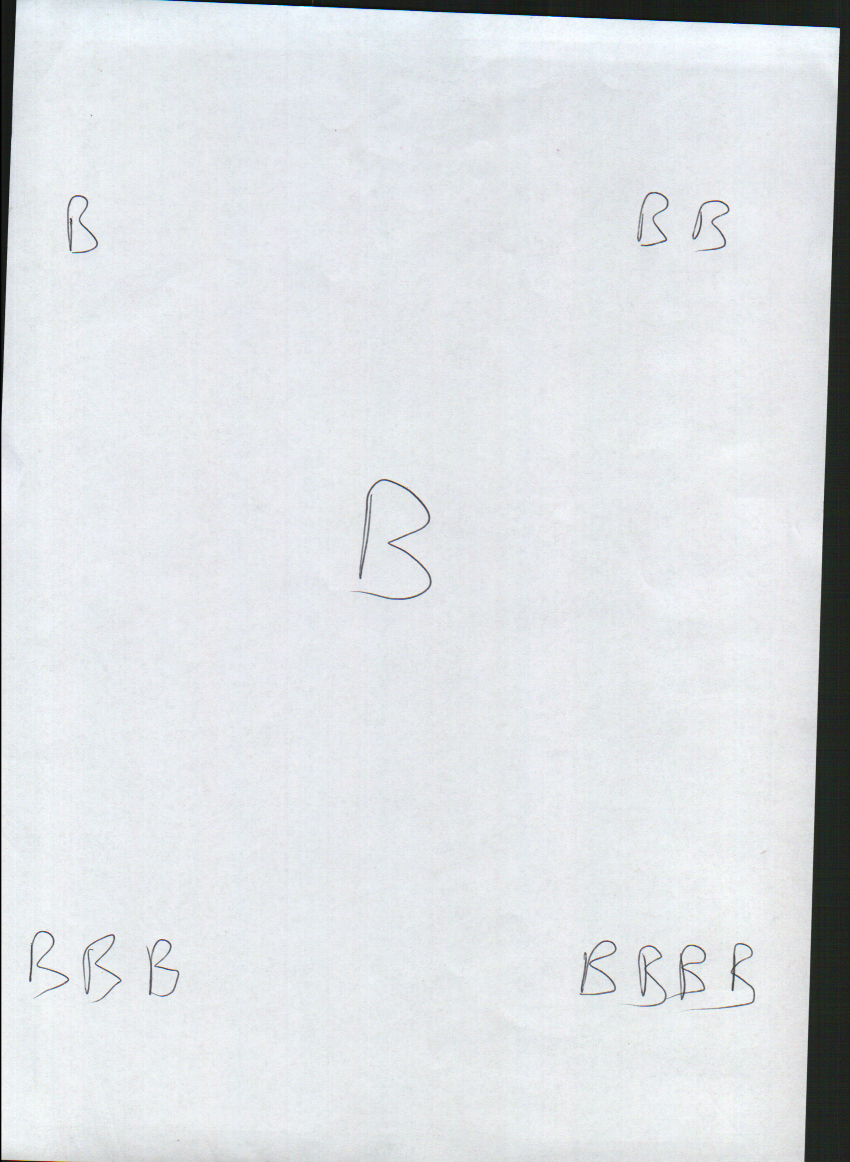 B BB
B
BBB BBBB